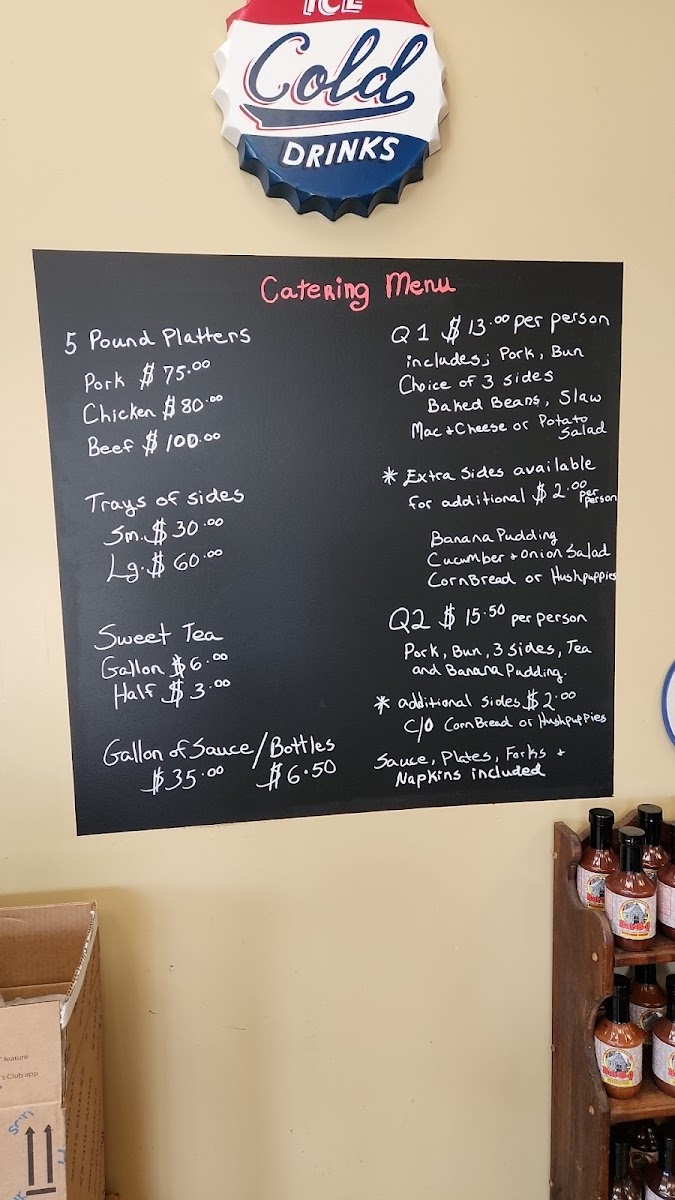 ICE
Cold
DRINKS
Catering Menu
5 Pound Platters
Pork $75.00
Chicken $80.00
Beef $100.00
Trays of sides
Sm. $30.00
Lg. $60.00
Sweet Tea
Gallon $6.00
Half $3.00
Gallon of Sauce/Bottles
$35.00 $6.50
Q1 $13.00 per person
includes; Pork, Bun
Choice of 3 sides
Baked Beans, Slaw
Mac + Cheese or Potato Salad
* Extra Sides available
for additional $2.00 per person
Banana Pudding
Cucumber + Onion Salad
CornBread or Hushpuppies
Q2 $15.50 per person
Pork, Bun, 3 sides, Tea
and Banana Pudding.
* additional sides $2.00
C/O CornBread or Hushpuppies
Sauce, Plates, Forks +
Napkins included
feature
's Club app